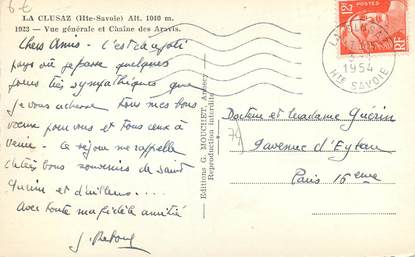 6€
LA CLUSAZ (Hte-Savoie) Alt. 1040 m.
1923 — Vue générale et Chaîne des Aravis.
Chers Amis - C'est d'un joli
pays où je passe quelques
jours très sympathiques que
je vous adresse tous mes bons
voeux pour vous et tous ceux à
venir - Ce séjour me rappelle
bons souvenirs de Saint
et d'ailleurs ....
Avec toute ma fidèle amitié
J.
Editions G. MOUCHET, Annecy
Reproduction interdite
LA CLUSAZ
1954
HTE SAVOIE
RF
Docteur et Madame Guérin
7 avenue d'Eylau
Paris 16eme
74